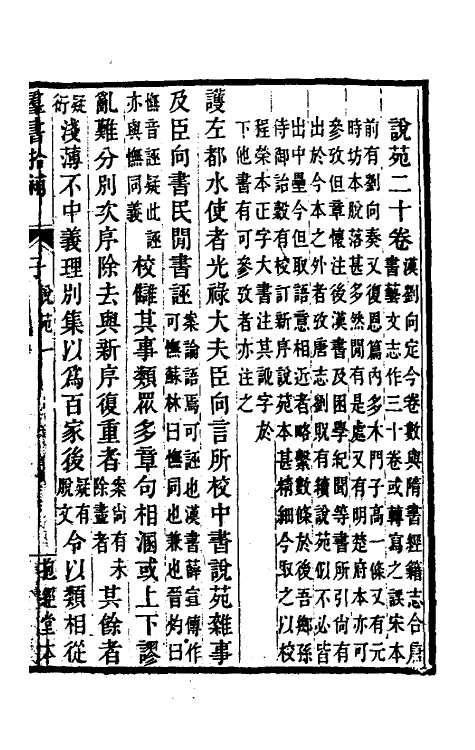 說苑二十卷
漢劉向定今卷數與隋書經籍志合唐
書藝文志作三十卷或轉寫之誤宋本
前有劉向奏又復恩篇內多木門子高一條又有元
時坊本脫落甚多然閒有是處又有明楚府本亦可
參攷但章懷注後漢書及困學紀聞等書所引尚有
出於今本之外者攷唐志劉貺有續說苑似不必皆
出中壘今但取語意相近者略繫數條於後吾鄉孫
侍御詒穀有校訂新序說苑本甚精細今取之以校
程榮本正字大書注其譌字於
下他書有可參攷者亦注之
護左都水使者光祿大夫臣向言所校中書說苑雜事
及臣向書民閒書誣
案論語焉可誣也漢書薛宣傳作
可憮蘇林曰憮同也兼也晉灼曰
憮音誣疑此誣
亦與憮同義
校讎其事類眾多章句相溷或上下謬
亂難分別次序除去與新序復重者
案尚有未
除盡者
其餘者
疑
衍
淺薄不中義理別集以爲百家後
疑有
脫文
令以類相從
羣書拾補
子
說苑一
抱經堂本